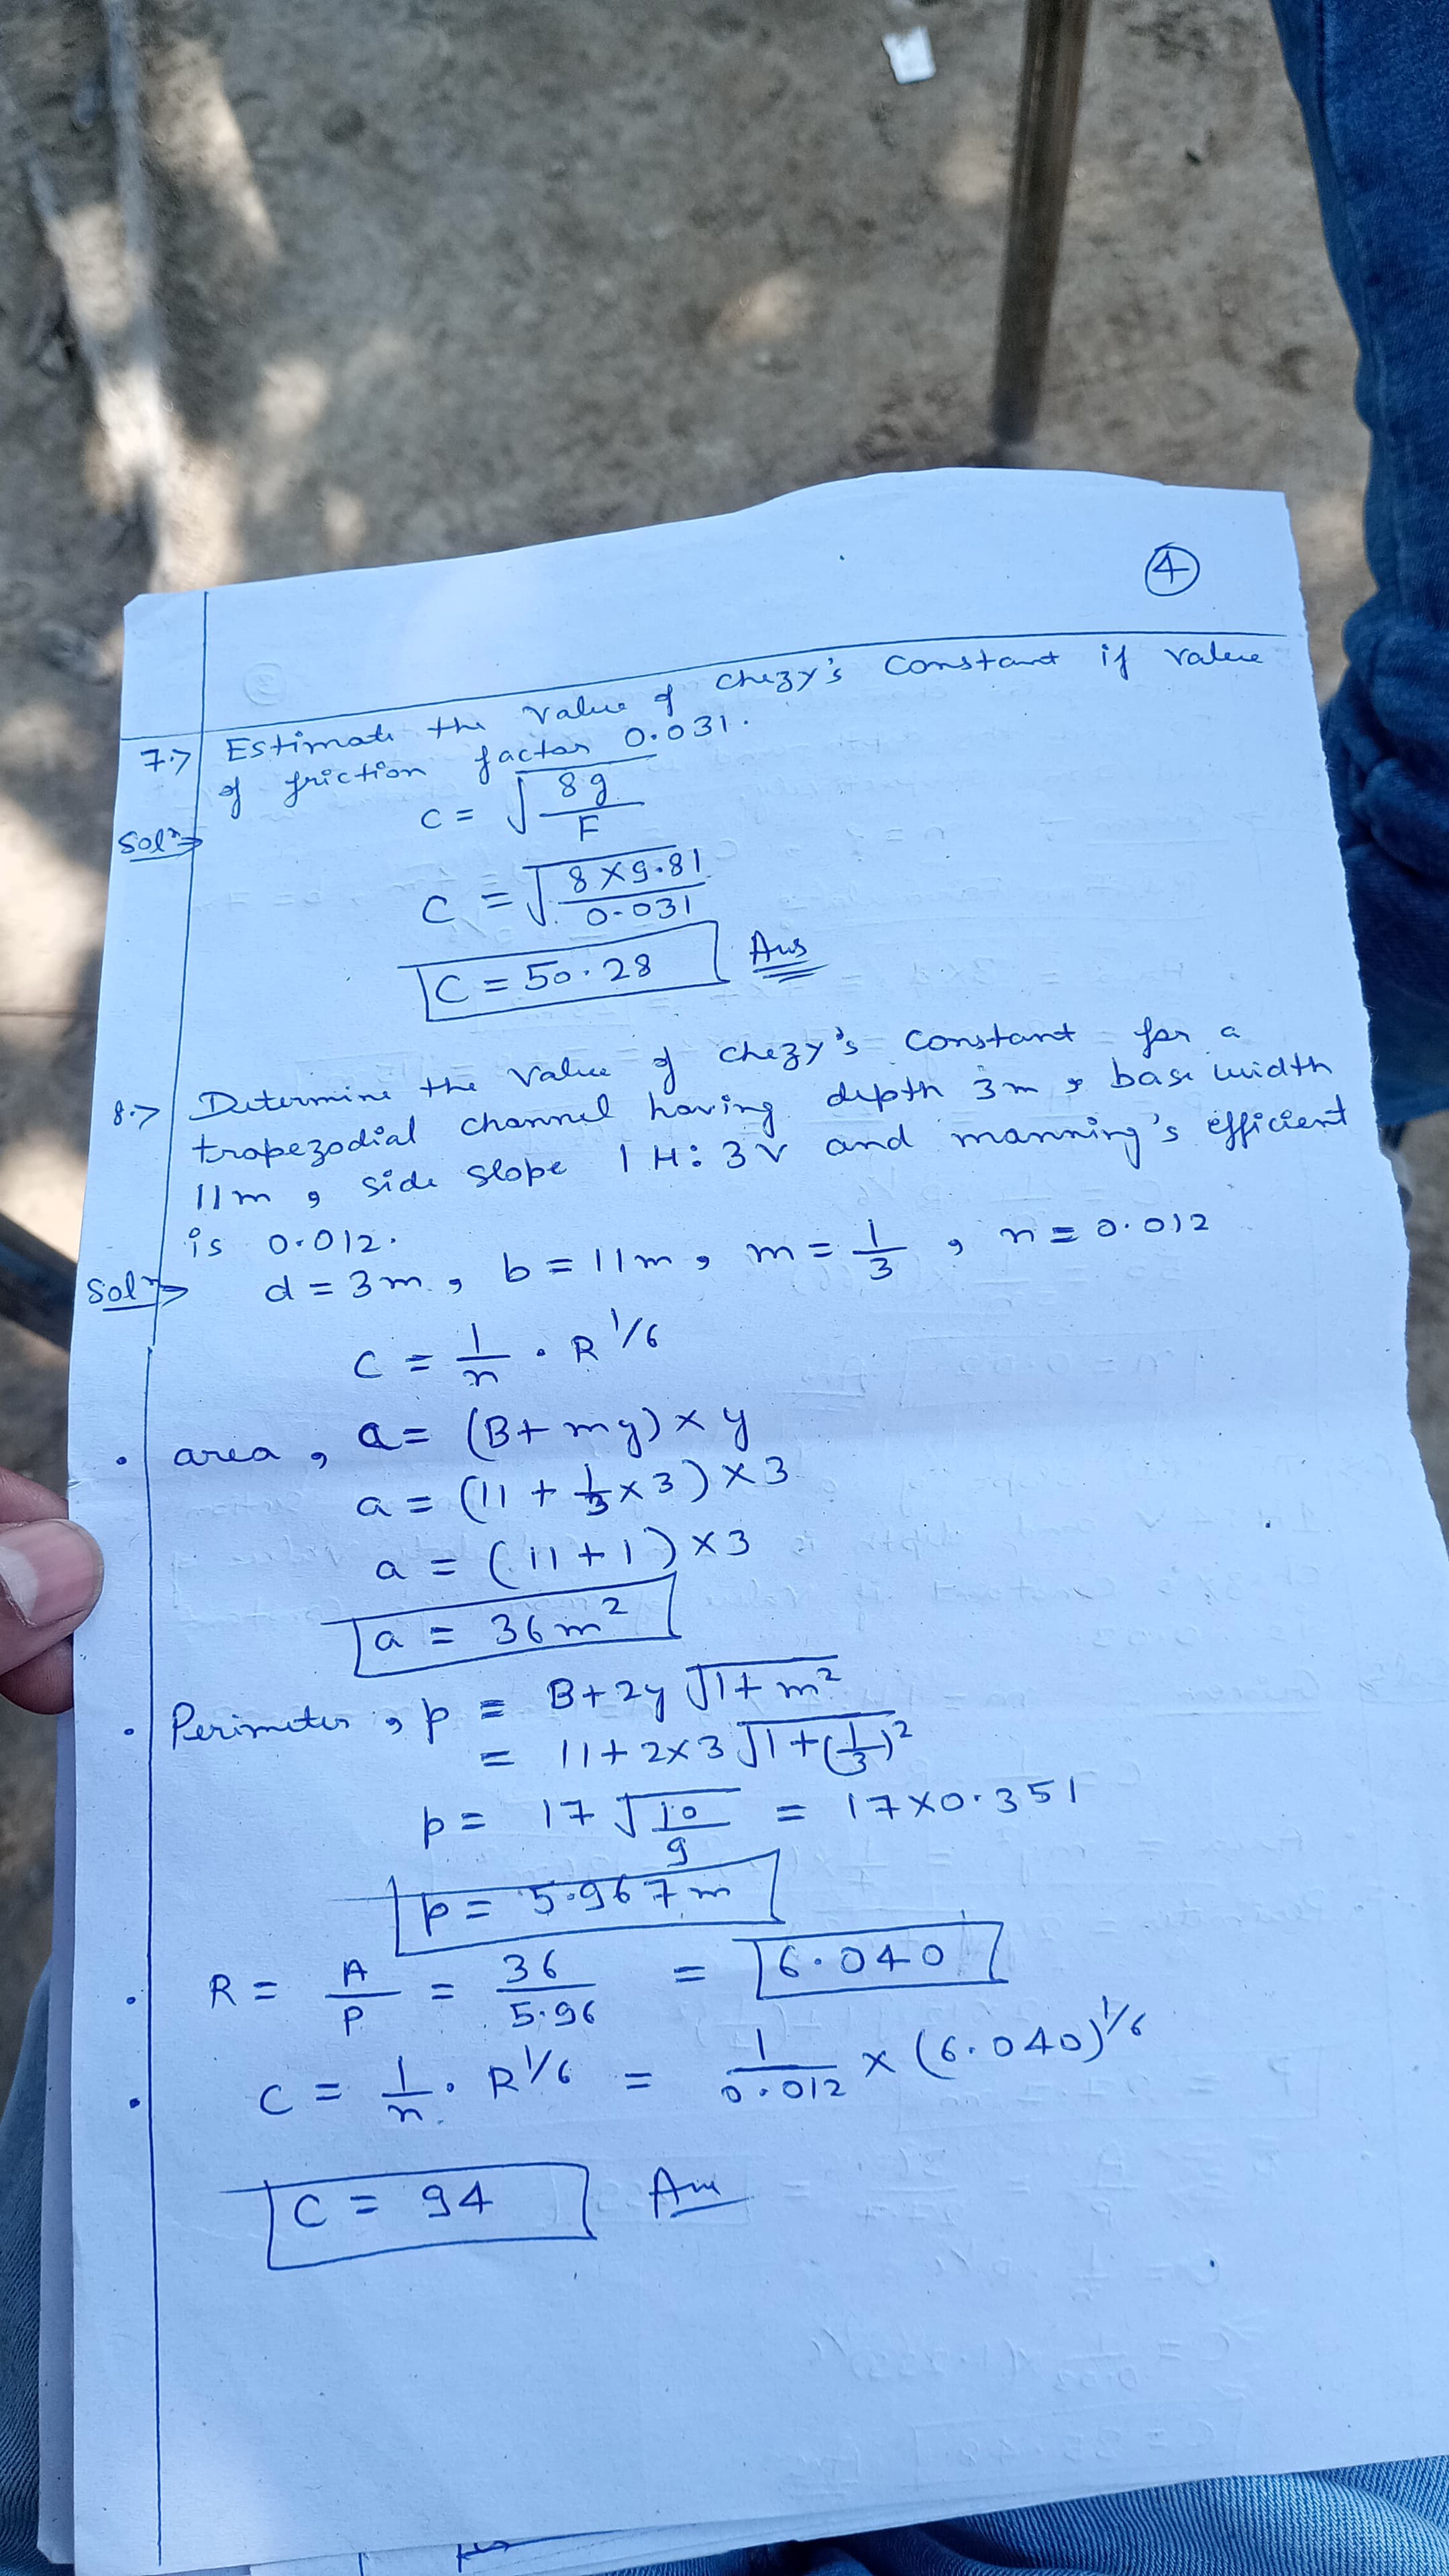 4
7.> Estimate the value of chezy's constant if value
of friction factor 0.031.
Solⁿ⇒ C = √(8g/F)
C = √(8×9.81/0.031)
C = 50.28 Ans
8.> Determine the value of chezy's constant for a
trapezodial channel having depth 3m, base width
11m, side slope 1H:3V and manning's efficient
is 0.012.
Solⁿ⇒ d = 3m, b = 11m, m = 1/3, n = 0.012
C = 1/n · R^1/6
· area, a = (B + my) × y
a = (11 + 1/3 × 3) × 3
a = (11 + 1) × 3
a = 36m²
· Perimeter, p = B + 2y √(1 + m²)
= 11 + 2×3 √(1 + (1/3)²)
p = 17 √(10/9) = 17 × 0.351
p = 5.967m
· R = A/P = 36/5.96 = 6.040
· C = 1/n · R^1/6 = 1/0.012 × (6.040)^1/6
C = 94 Ans